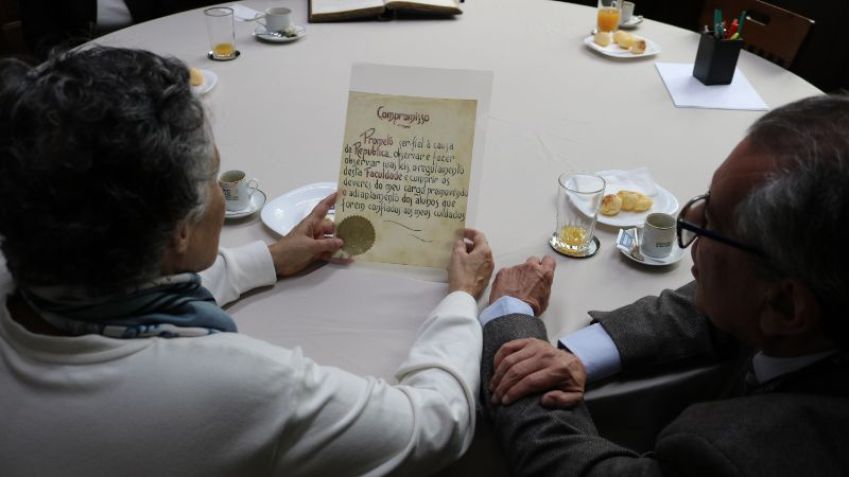 Compromisso
Prometo ser fiel à causa
da República, observar e fazer
observar suas leis, o regulamento
desta Faculdade e cumprir os
deveres do meu cargo promovendo
o adiantamento dos alunos que
forem confiados aos meus cuidados